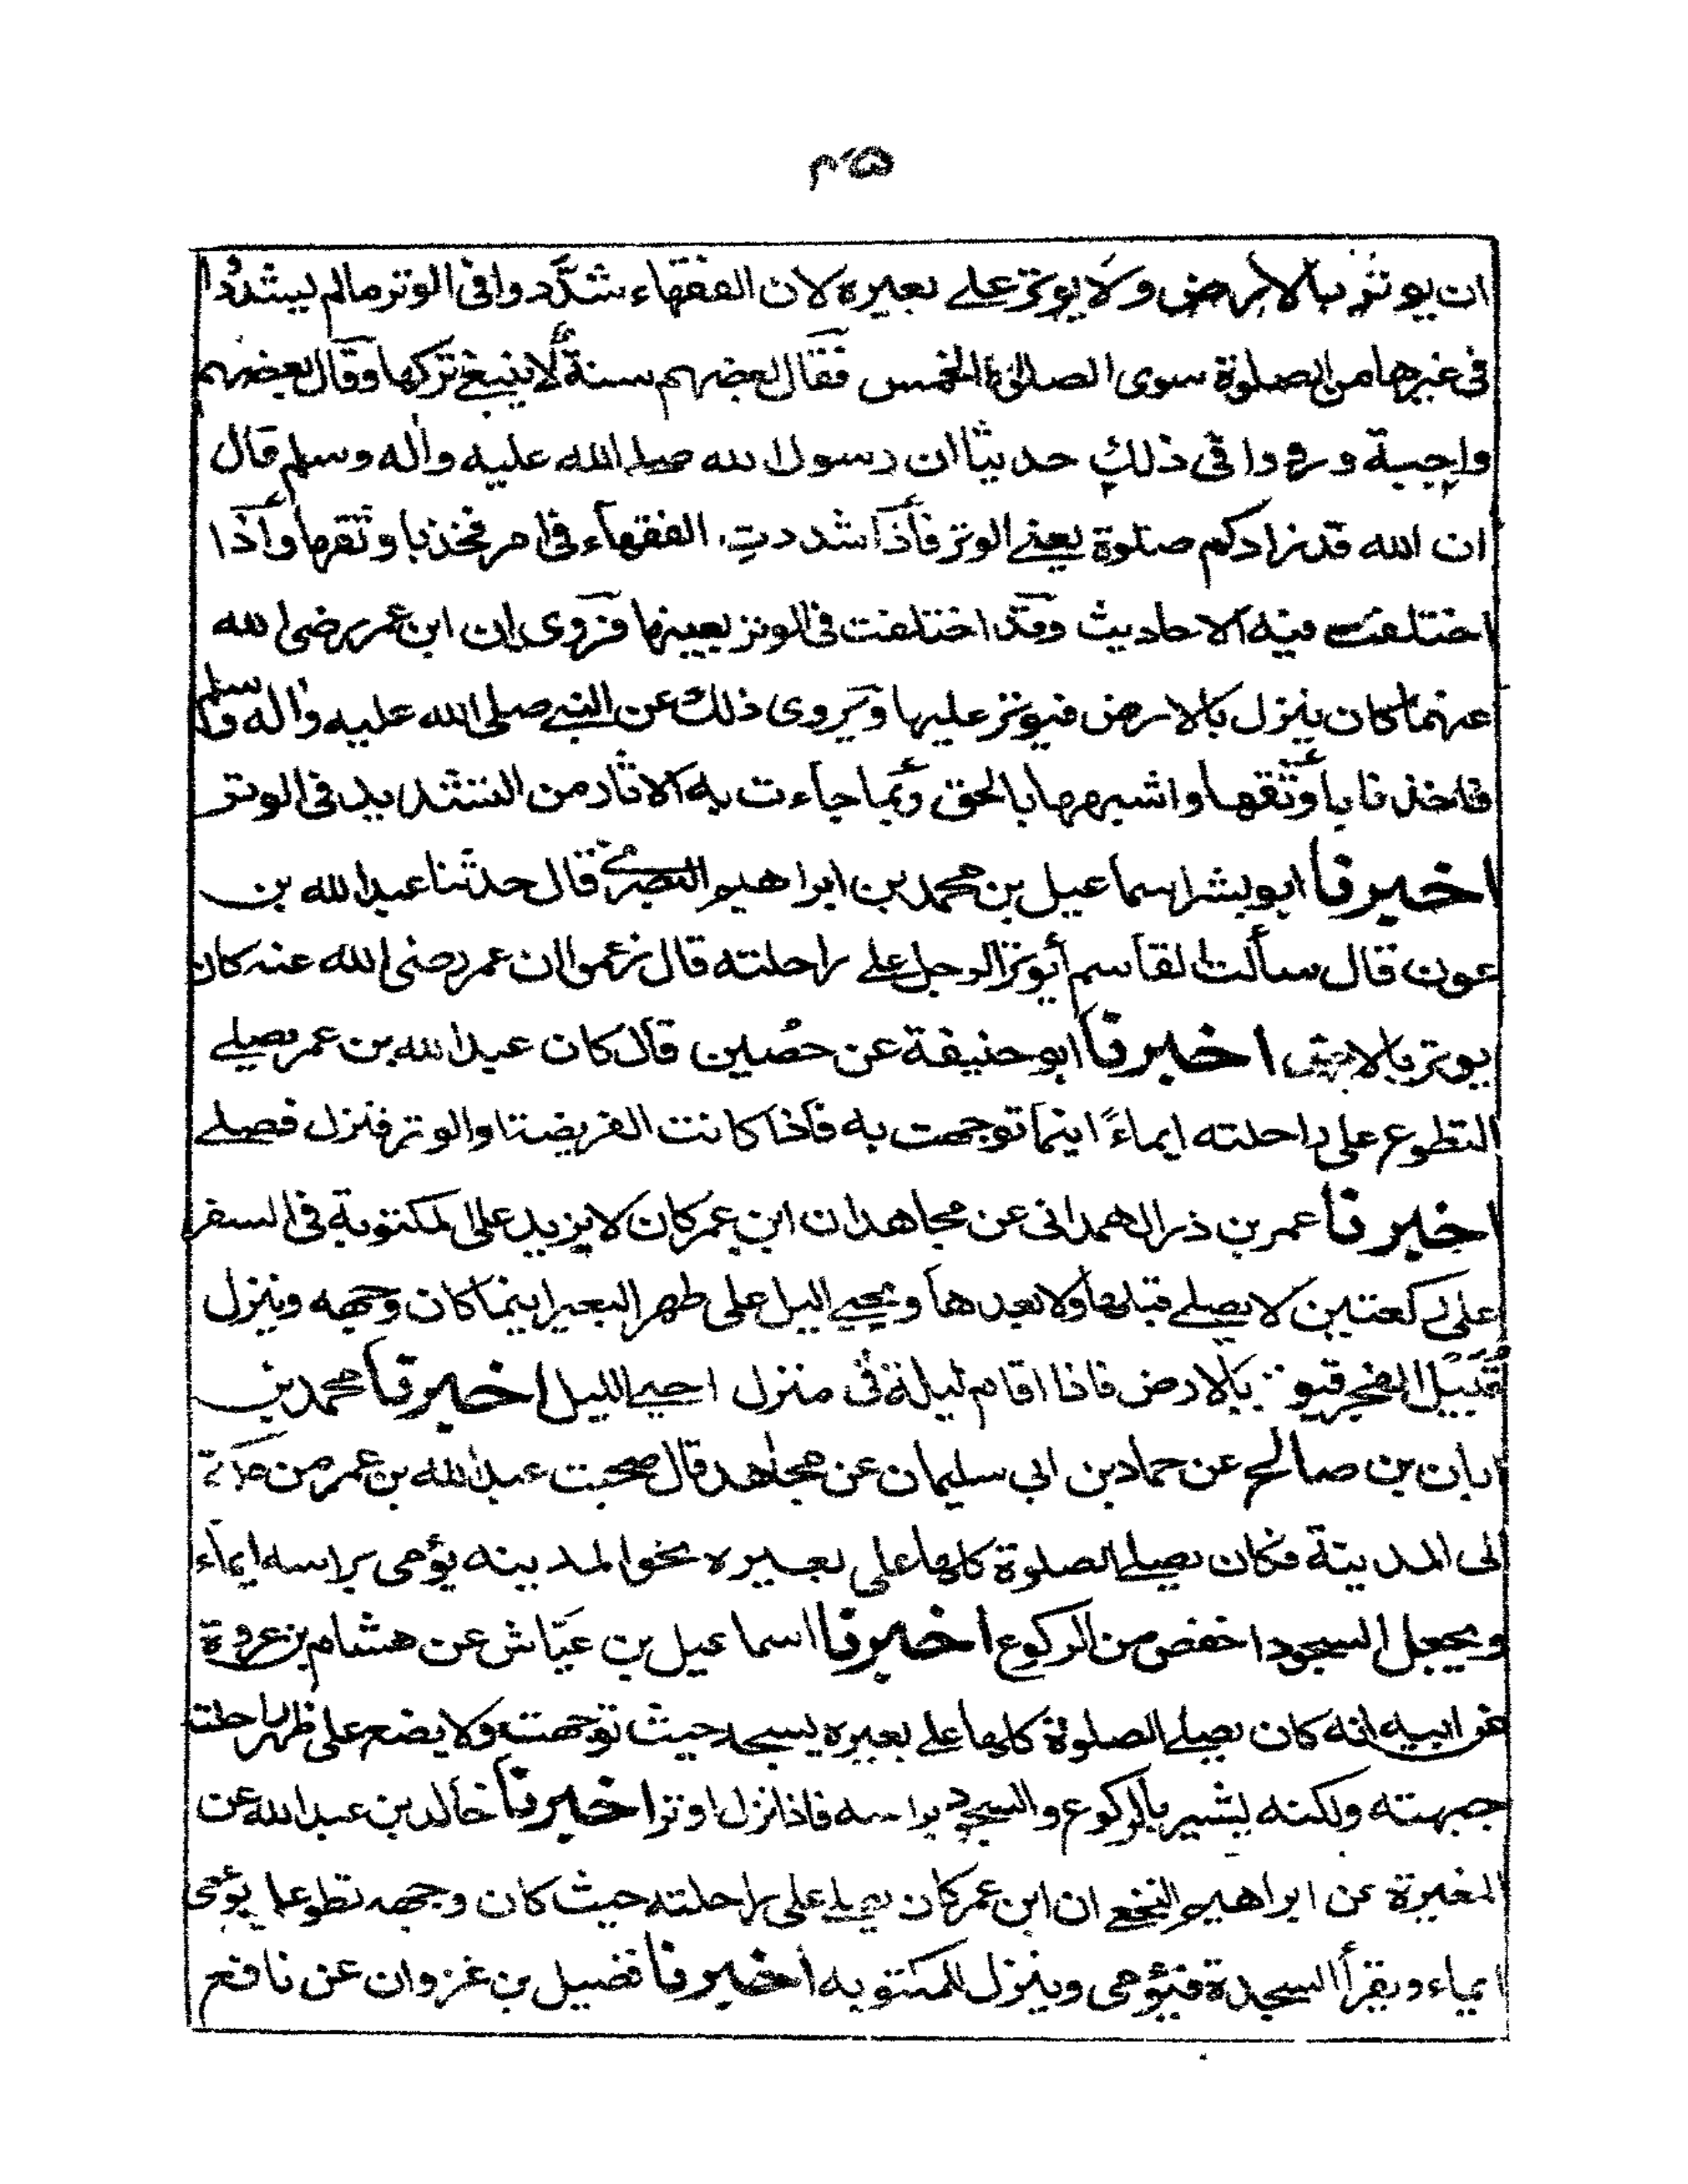 ٣٥
ان يوتر بالارض ولا يوتر على بعيره لان الفقهاء شدّدوا فى الوتر مالم يشدّدوا
فى غيرها من الصلوة سوى الصلوة الخمس فقال بعضهم سنة لا ينبغى تركها وقال بعضهم
واجبة ورووا فى ذلك حديثا ان رسول الله صلى الله عليه واله وسلم قال
ان الله قد زادكم صلوة يعنى الوتر فاذا شددت الفقهاء فى امر فخذ باوثقها واذا
اختلفت فيه الاحاديث وقد اختلفت فى الوتر بعينها فروى ان ابن عمر رضى الله
عنهما كان ينزل بالارض فيوتر عليها ويروى ذلك عن النبى صلى الله عليه واله وسلم
فاخذنا باوثقها واشبهها بالحق وبما جاءت به الاثار من التشديد فى الوتر
اخبرنا ابو بشر اسماعيل بن محمد بن ابراهيم البصرى قال حدثنا عبد الله بن
عون قال سألت القاسم أيوتر الرجل على راحلته قال زعموا ان عمر رضى الله عنه كان
يوتر بالارض اخبرنا ابو حنيفة عن حصين قال كان عبد الله بن عمر يصلى
التطوع على راحلته ايماءً اينما توجهت به فاذا كانت الفريضة او الوتر فنزل فصلى
اخبرنا عمر بن ذر الهمدانى عن مجاهد ان ابن عمر كان لا يزيد على المكتوبة فى السفر
على ركعتين لا يصلى قبلها ولا بعدها ويحيى اليل على ظهر البعير اينما كان وجهه وينزل
قُبَيْل الفجر فيوتر بالارض فاذا اقام ليلة فى منزل احيى الليل اخبرنا محمد بن
ابان بن صالح عن حماد بن ابى سليمان عن مجاهد قال صحبت عبد الله بن عمر من مكة
الى المدينة فكان يصلى الصلوة كلها على بعيره نحو المدينه يؤمى براسه ايماء
ويجعل السجود اخفض من الركوع اخبرنا اسماعيل بن عيّاش عن هشام بن عروة
عن ابيه انه كان يصلى الصلوة كلها على بعيره يسجد حيث توجهت ولا يضع على ظهر راحلته
جبهته ولكنه يشير بالركوع والسجود براسه فاذا نزل اوتر اخبرنا خالد بن عبد الله عن
المغيرة عن ابراهيم النخعى ان ابن عمر كان يصلى على راحلته حيث كان وجهه تطوعا يؤمى
ايماء ويقرأ السجدة فيؤمى وينزل للمكتوبه اخبرنا فضيل بن غزوان عن نافع